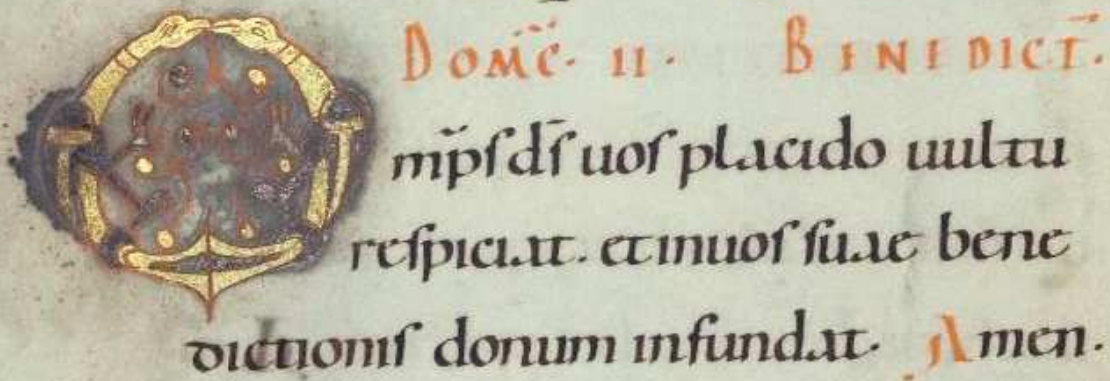 Domc̄. II. BENEDICT̄.
Omp̄s ds̄ uos placido uultu
respiciat. et in uos suae bene
dictionis donum infundat. Amen.